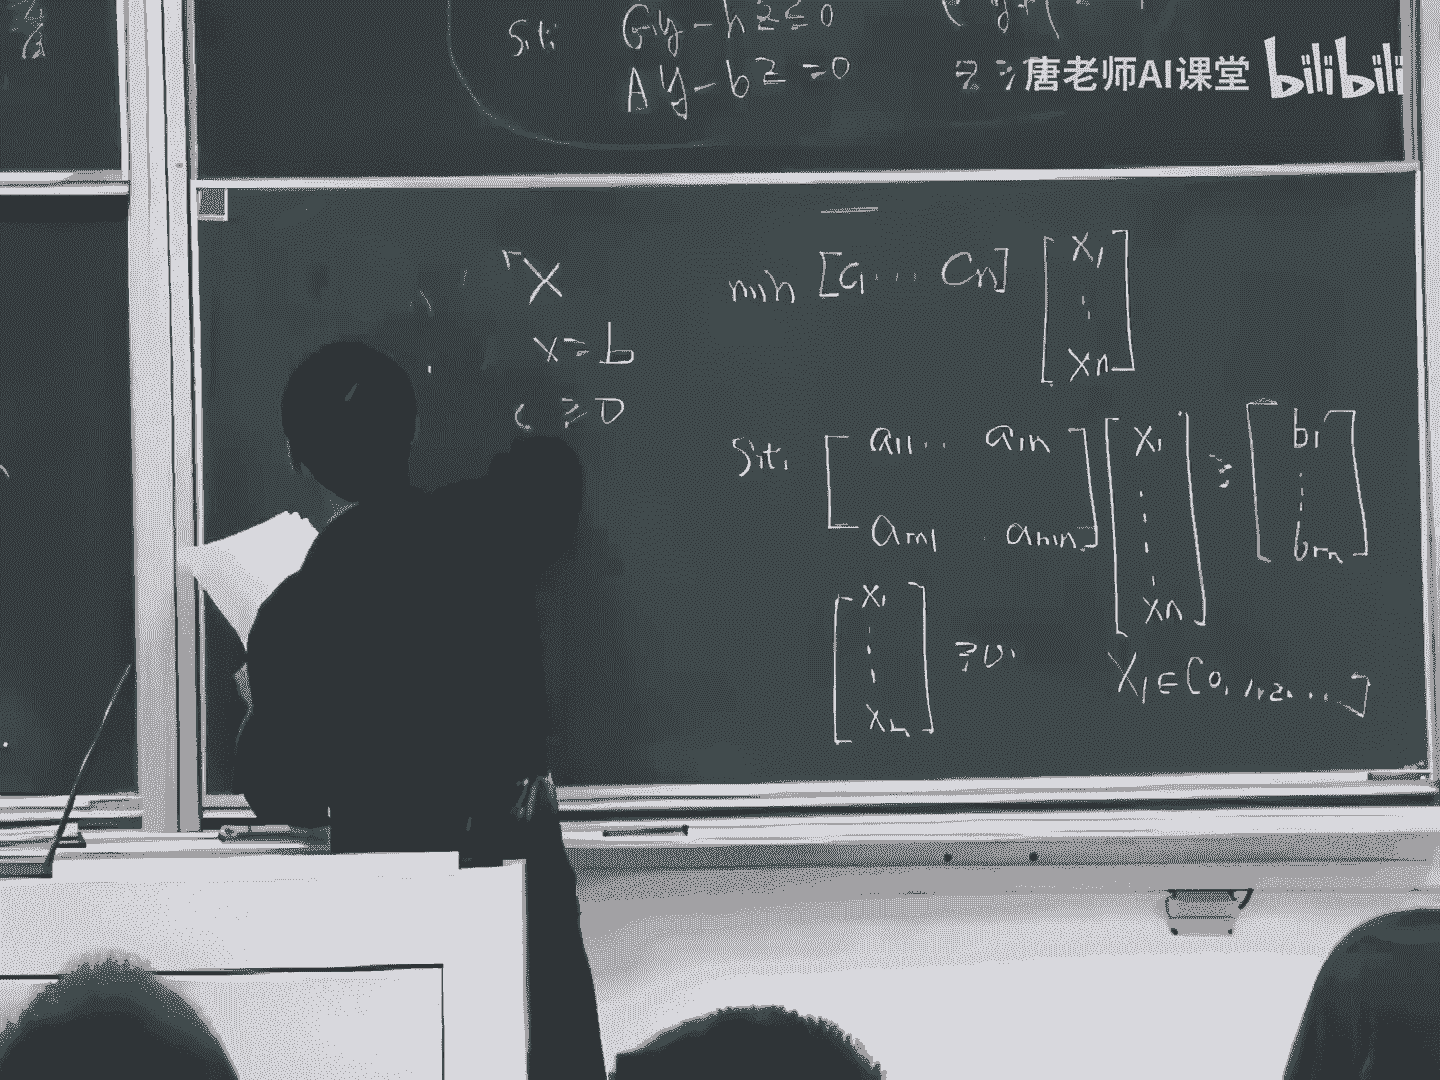 s.t. Gy - hz ≤ 0
Ay - bz = 0
唐老师AI课堂 bilibili
X
x = b
≥ 0
min [c1 ... cn] [x1 ⋮ xn]
s.t. [a11 ... a1n
am1 . amn] [x1 ⋮ xn] ≥ [b1 ⋮ bm]
[x1 ⋮ xn] ≥ 0.
X1 ∈ [0, 1, 2, ...]